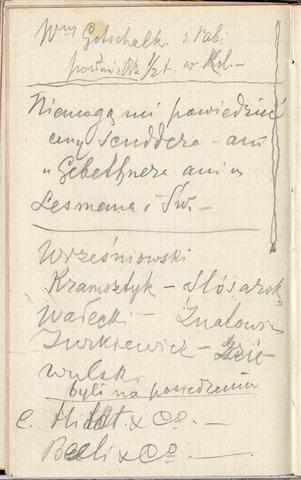 Gotschalk. z
1/2 t. w Kol.–
Niemogą mi powiedzieć
ceny Scuddera – ani
u Gebethnera ani u
Lesmana i Św.–
Wrześniowski
Kramsztyk – Slósarski
Wałecki – Znatowicz
Jurkiewicz – Dzie
wulski
byli na posiedzeniu
C. & Co. –
& Co. –